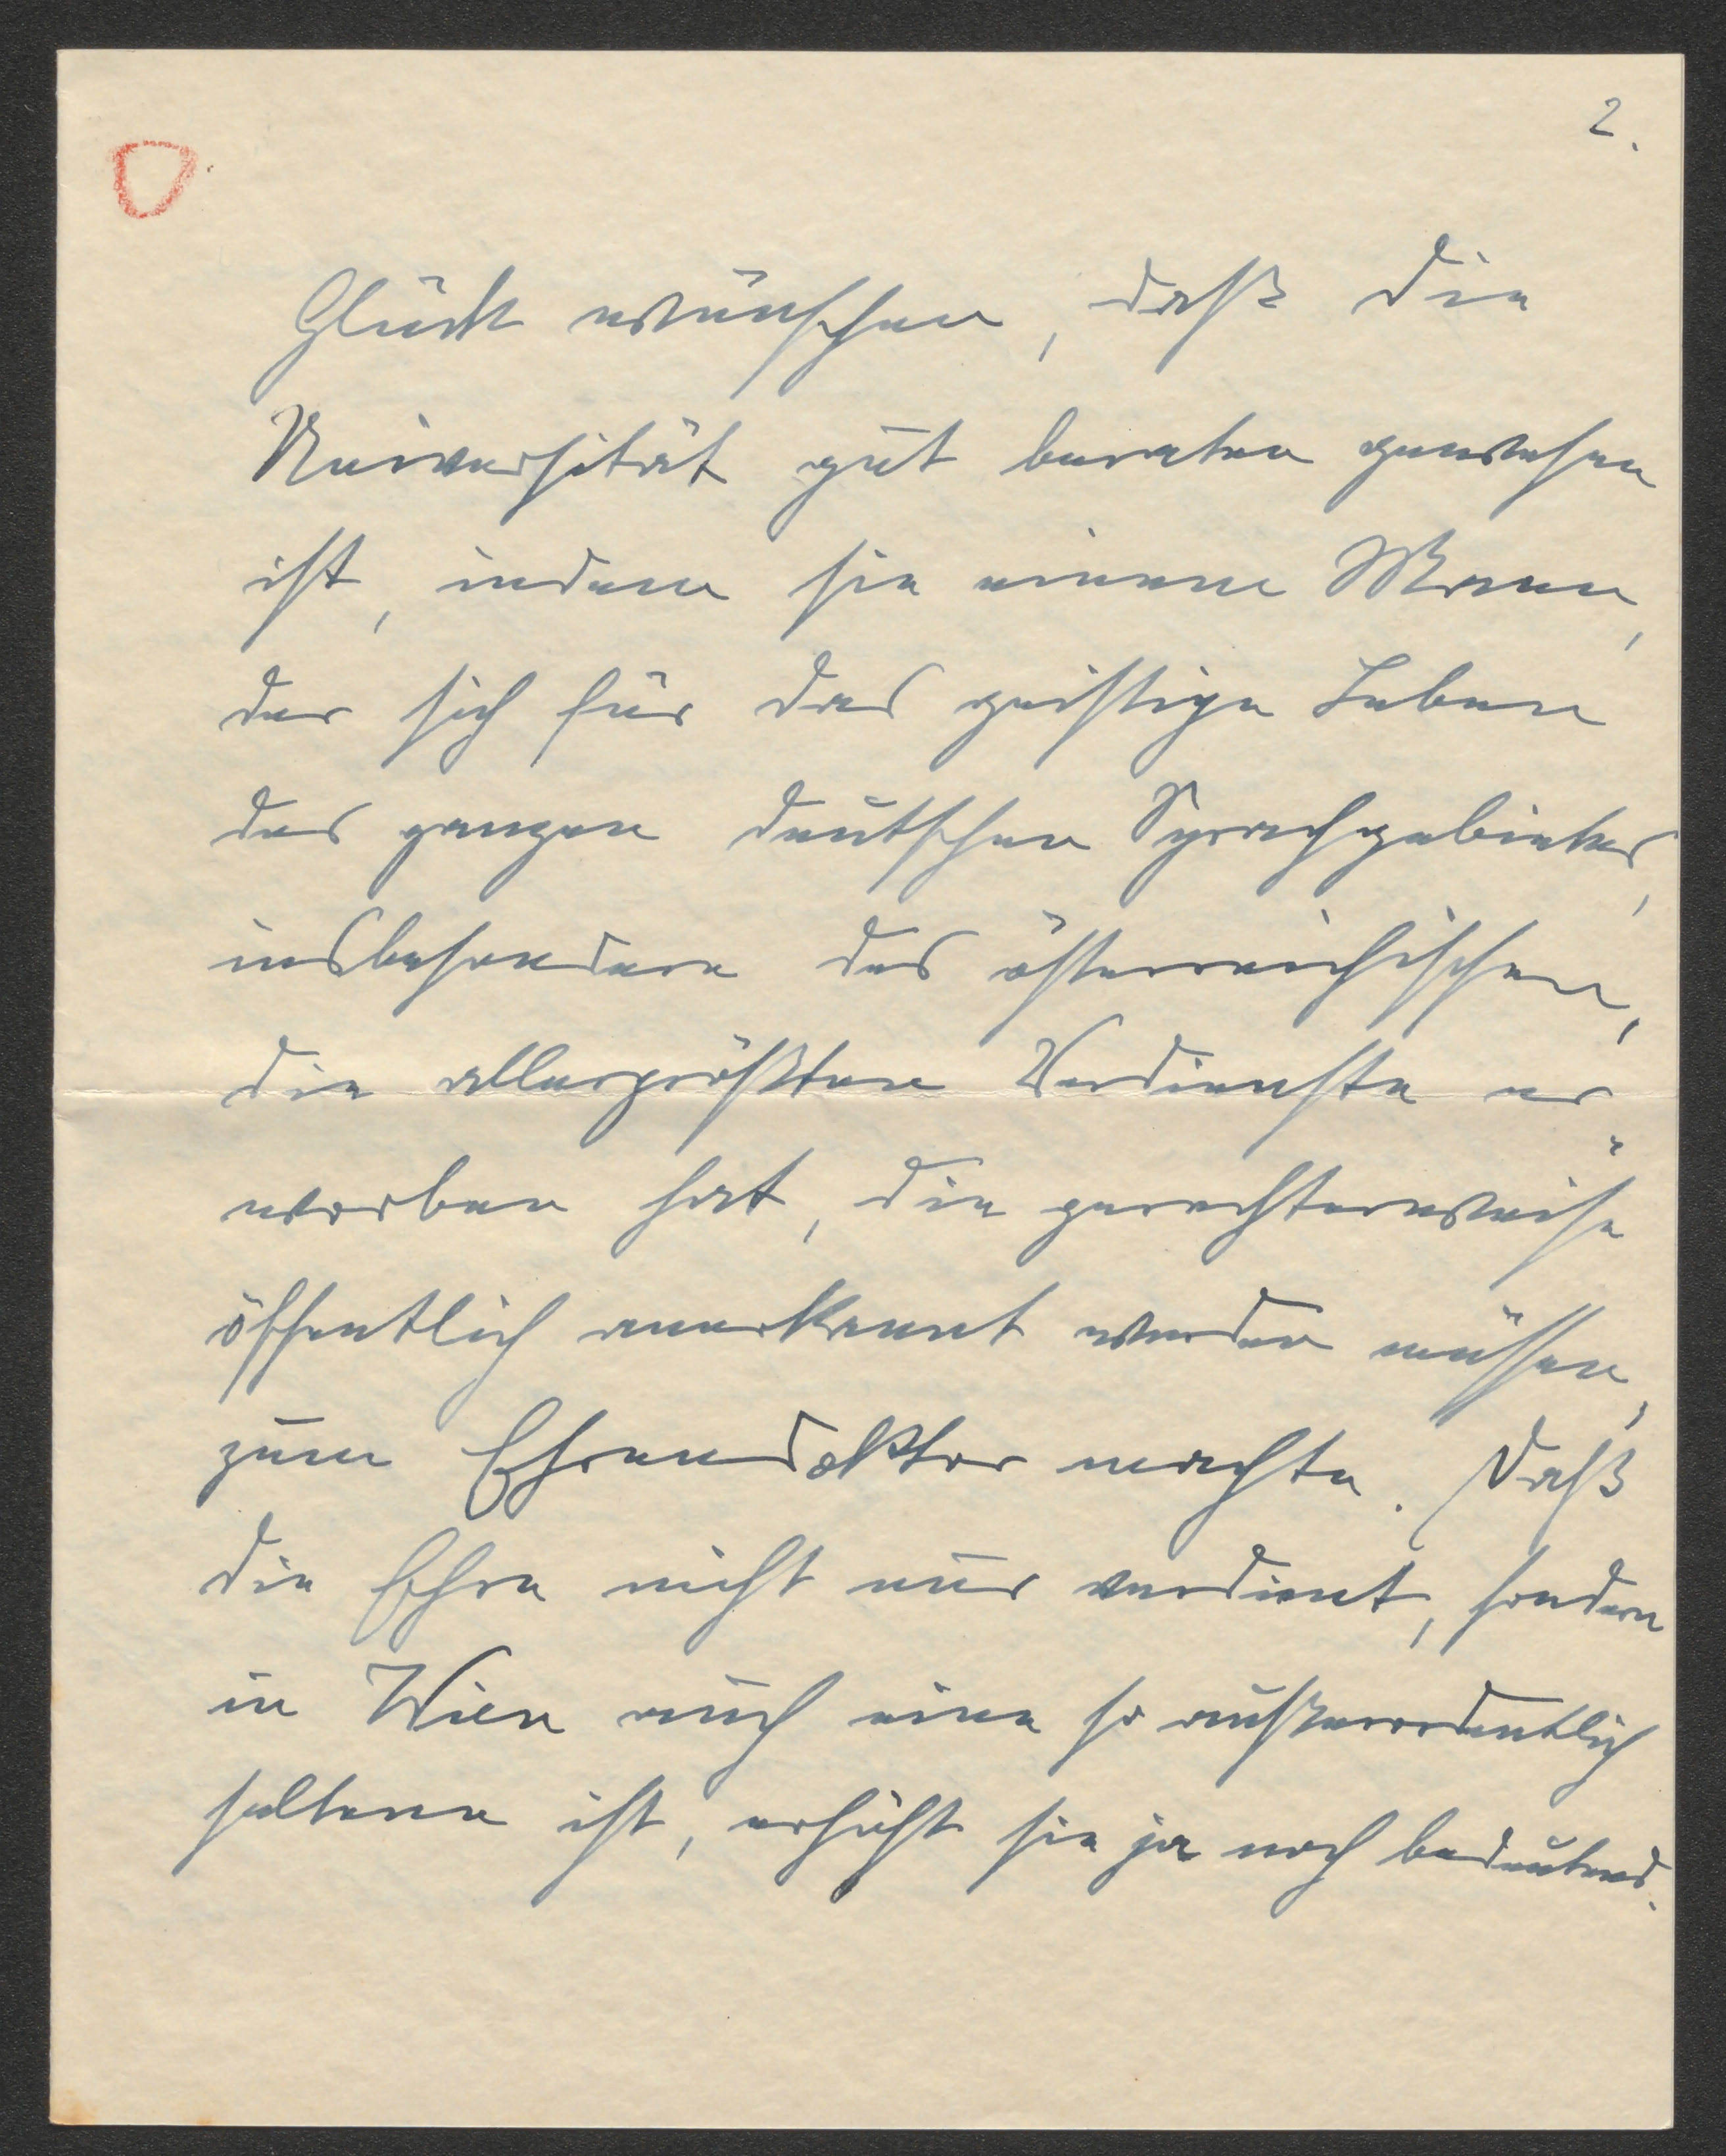 2.
Glück wünschen, daß die
Universität gut beraten gewesen
ist, indem sie einem Mann,
der sich für das geistige Leben
des ganzen deutschen Sprachgebietes,
insbesondere des österreichischen,
die allergrößten Verdienste er-
worben hat, die gerechterweise
öffentlich anerkannt werden müssen,
zum Ehrendoktor machte. Daß
die Ehre nicht nur verdient, sondern
in Wien auch eine so außerordentlich
seltene ist, erhöht sie ja noch bedeutend.